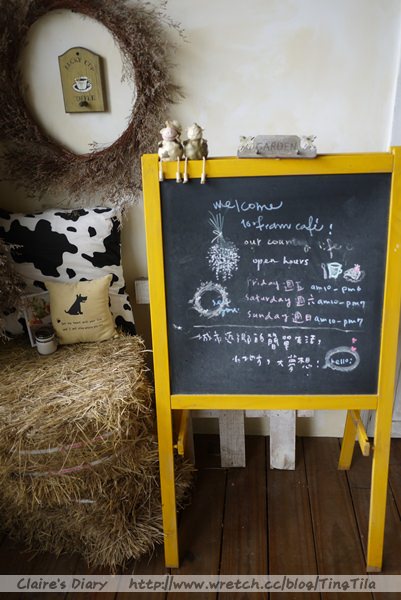 LUCKY CUP
COFFEE
GARDEN
welcome
to fram café!
our country life
open hours
friday 週五 am10-pm6
saturday 週六 am10-pm7
sunday 週日 am10-pm7
簡單生活,
小小的,大夢想!
hello!
Claire's Diary http://www.wretch.cc/blog/TingTila